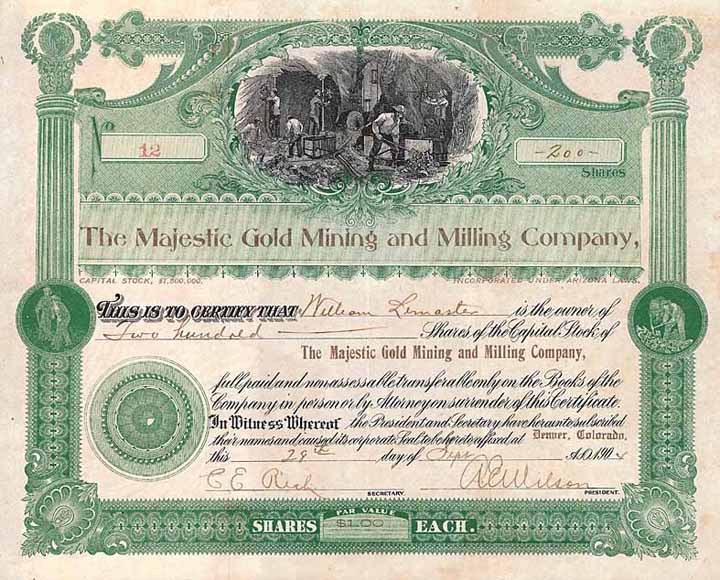 No 12
-200-
Shares
The Majestic Gold Mining and Milling Company,
CAPITAL STOCK, $1,500,000. INCORPORATED UNDER ARIZONA LAWS.
THIS IS TO CERTIFY THAT William Lemaster is the owner of
Two hundred Shares of the Capital Stock of
The Majestic Gold Mining and Milling Company,
full paid and nonassessable transferable only on the Books of the
Company in person or by Attorney on surrender of this Certificate.
In Witness Whereof the President and Secretary have hereunto subscribed
their names and caused its corporate Seal to be hereto affixed at Denver, Colorado.
this 29th day of Sept A.D. 190
C E
SECRETARY.
Wilson
PRESIDENT.
PAR VALUE
SHARES $1.00 EACH.